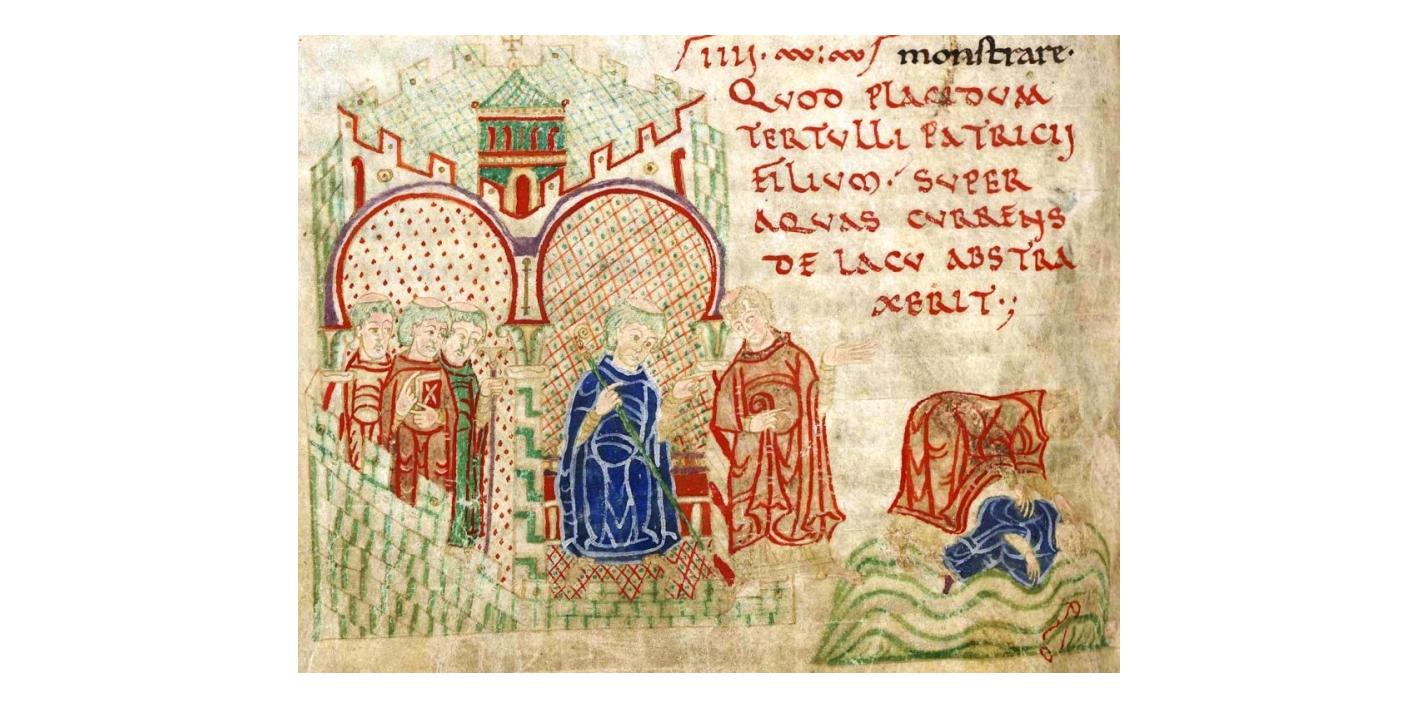 monstrare·
QUOD PLACIDUM
TERTULLI PATRICIJ
FILIUM· SUPER
AQUAS CURRENS
DE LACU ABSTRA
XERIT·;